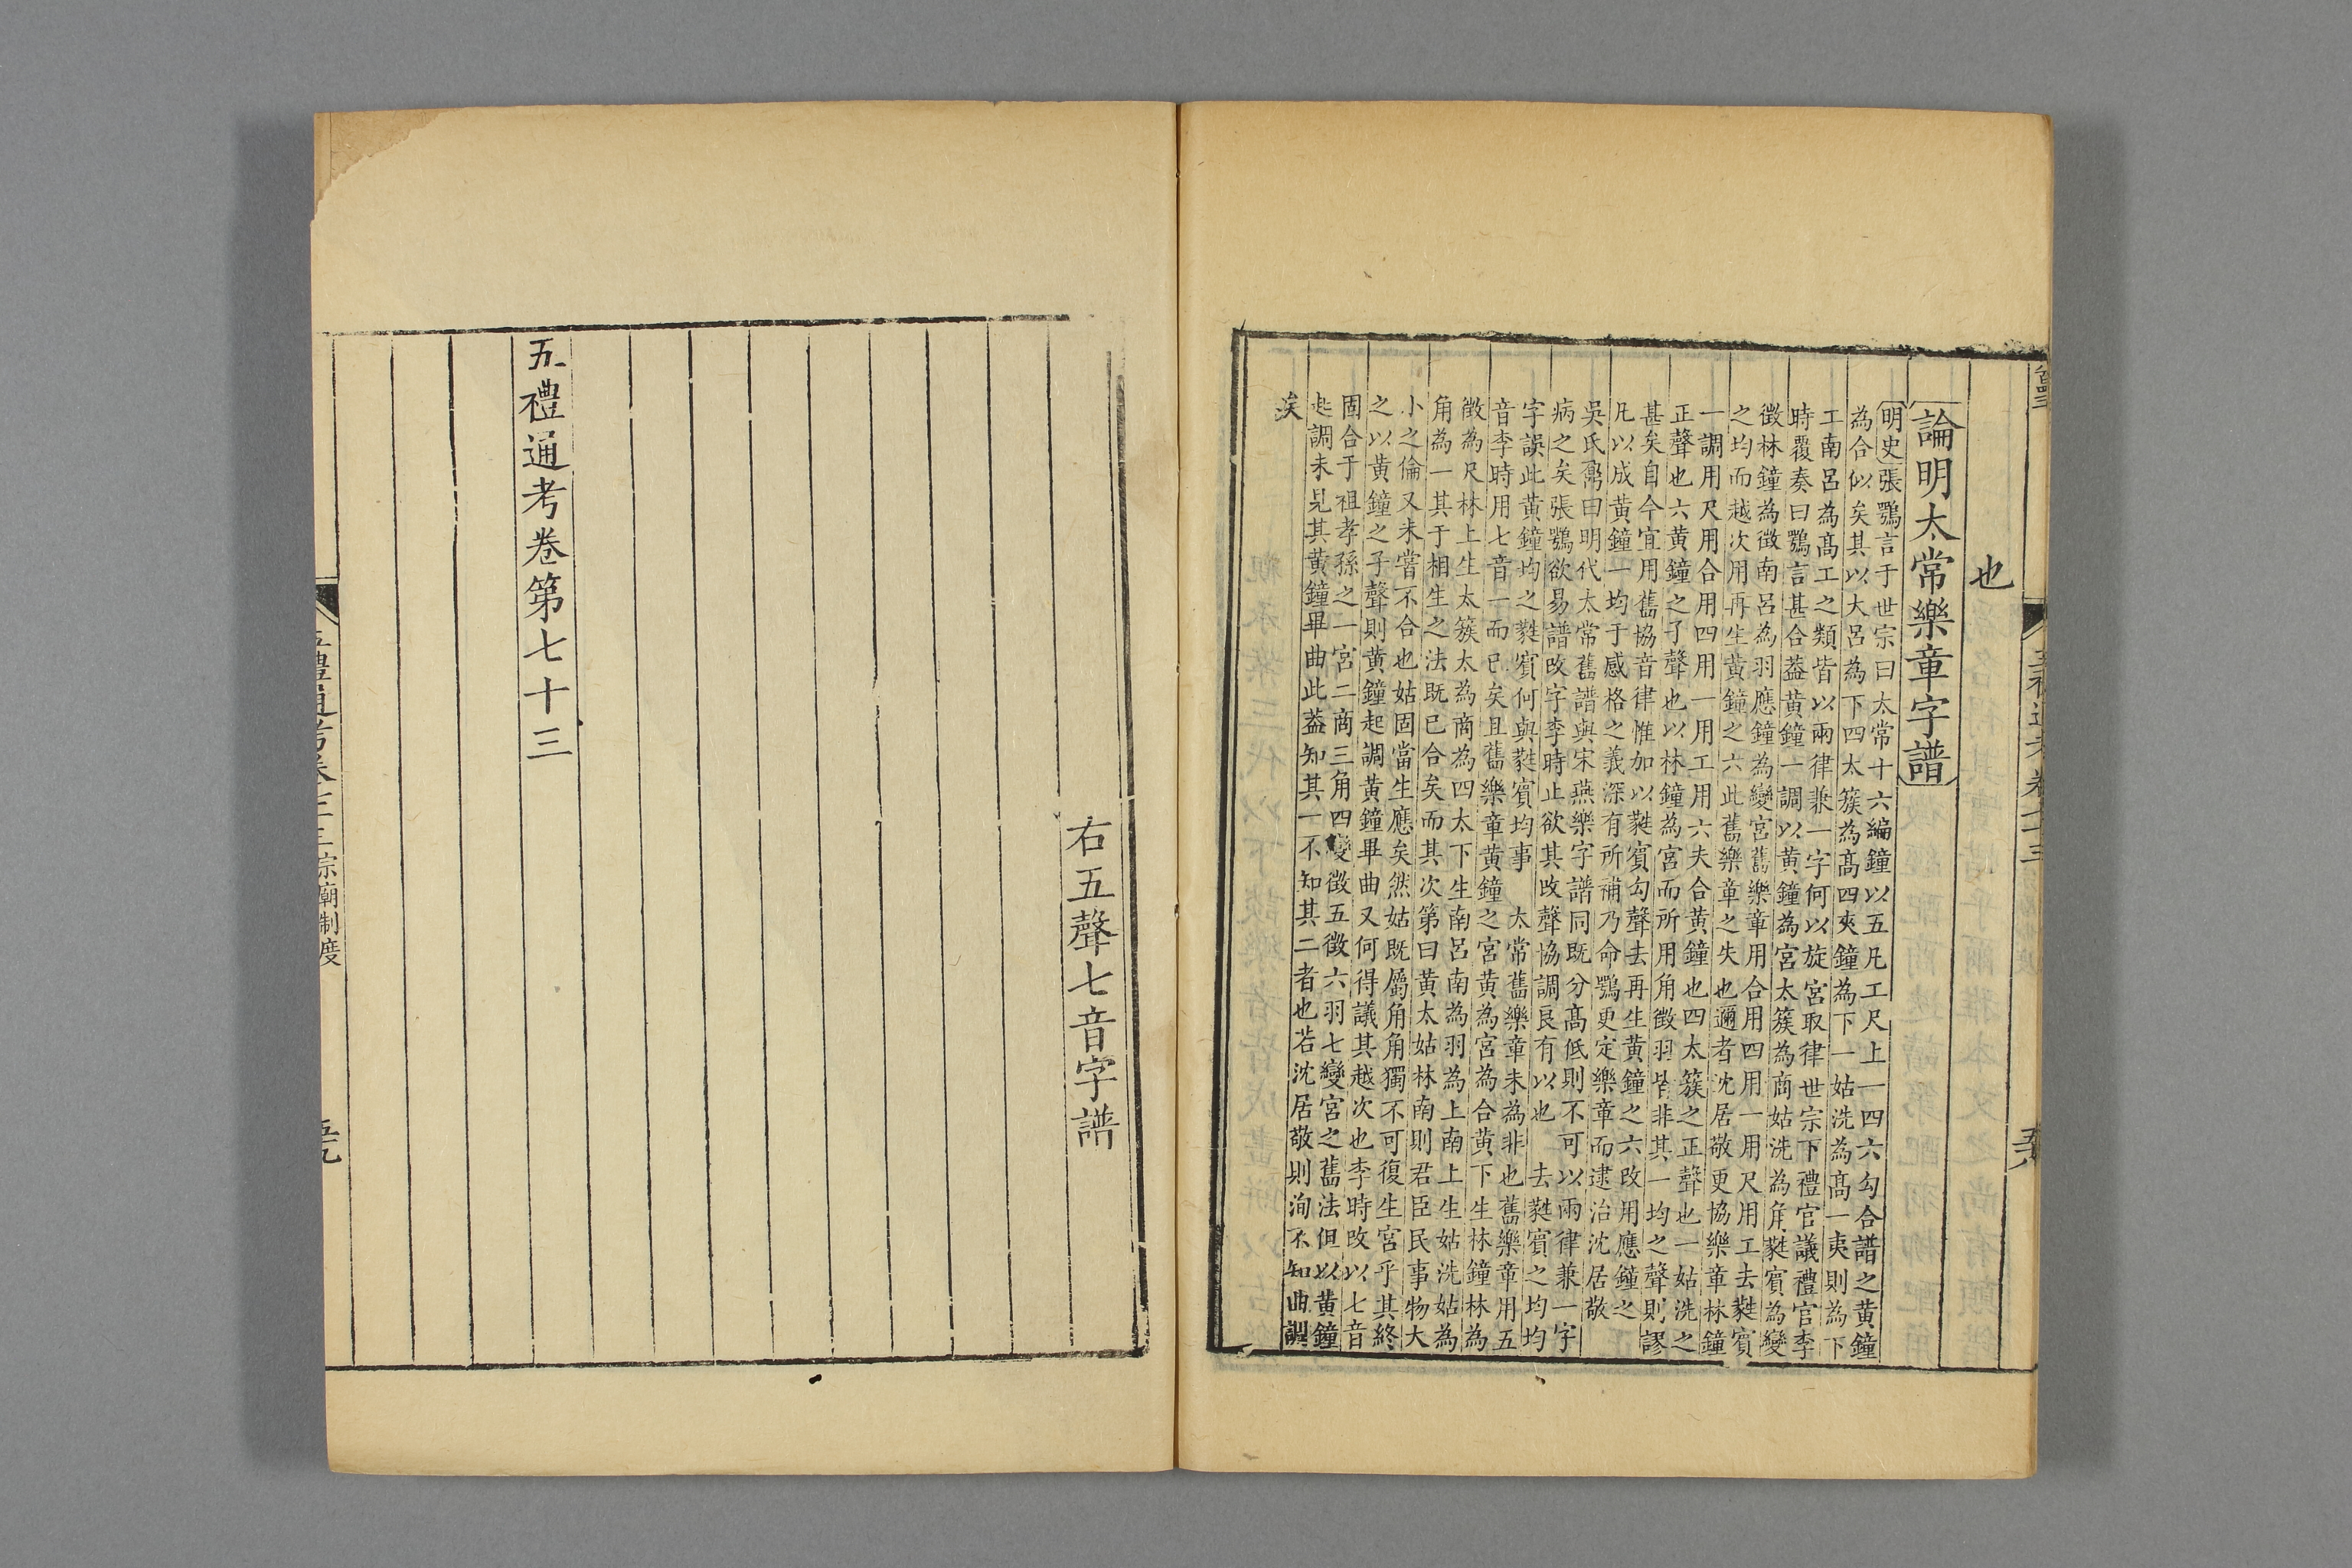 也
論明太常樂章字譜
明史張鶚言于世宗曰太常十六編鐘以五凡工尺上一四六勾合譜之黃鐘
為合似矣其以大呂為下四太簇為髙四夾鐘為下一姑洗為髙一夷則為下
工南呂為髙工之類皆以兩律兼一字何以旋宮取律世宗下禮官議禮官李
時覆奏曰鶚言甚合葢黃鐘一調以黃鐘為宮太簇為商姑洗為角蕤賓為變
徵林鐘為徵南呂為羽應鐘為變宮舊樂章用合用四用一用尺用工去蕤賓
之均而越次用再生黃鐘之六此舊樂章之失也邇者沈居敬更協樂章林鐘
一調用尺用合用四用一用工用六夫合黃鐘也四太簇之正聲也一姑洗之
正聲也六黃鐘之子聲也以林鐘為宮而所用角徵羽皆非其一均之聲則謬
甚矣自今宜用舊協音律惟加以蕤賓勾聲去再生黃鐘之六改用應鐘之
凡以成黃鐘一均于感格之義深有所補乃命鶚更定樂章而逮治沈居敬
吳氏鼐曰明代太常舊譜與宋燕樂字譜同既分髙低則不可以兩律兼一字
病之矣張鶚欲易譜改字李時止欲其改聲協調良有以也　去蕤賓之均均
字誤此黃鐘均之蕤賓何與蕤賓均事　太常舊樂章未為非也舊樂章用五
音李時用七音一而已矣且舊樂章黃鐘之宮黃為宮為合黃下生林鐘林為
徵為尺林上生太簇太為商為四太下生南呂南為羽為上南上生姑洗姑為
角為一其于相生之法既已合矣而其次第曰黃太姑林南則君臣民事物大
小之倫又未嘗不合也姑固當生應矣然姑既屬角角獨不可復生宮乎其終
之以黃鐘之子聲則黃鐘起調黃鐘畢曲又何得議其越次也李時改以七音
固合于祖孝孫之一宮二商三角四變徵五徵六羽七變宮之舊法但以黃鐘
起調未見其黃鐘畢曲此葢知其一不知其二者也若沈居敬則洵不知曲調
矣
右五聲七音字譜
五禮通考卷第七十三
宗廟制度